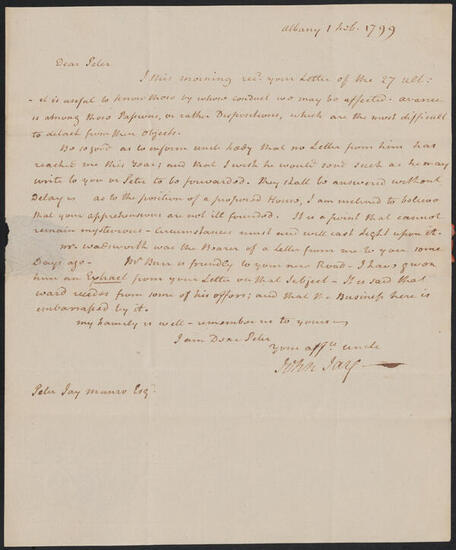 Albany 1 Feb. 1799
Dear Peter
I this morning recd. your Letter of the 27 ult:
- it is useful to know those by whose conduct we may be affected. avarice
is among those Passions, or rather Dispositions, which are the most difficult
to detach from their objects.
Be so good as to inform that no Letter from him has
reached me this Year; and that I wish he would send such as he may
write to you or Peter to be forwarded. They shall be answered without
Delay as to the position of a proposed House, I am inclined to believe
that your apprehensions are not ill founded. It is a point that cannot
remain mysterious - Circumstances must and will cast Light upon it.
Mr. Wadsworth was the Bearer of a Letter from me to you some
Days ago - Mr Burr is friendly to your new Road - I have given
him an Extract from your Letter on that Subject - It is said that
ward recedes from some of his offers; and that the Business here is
embarrassed by it.
my family is well - remember us to yours
I am Dear Peter
Your affte. uncle
John Jay
Peter Jay Munro Esqr